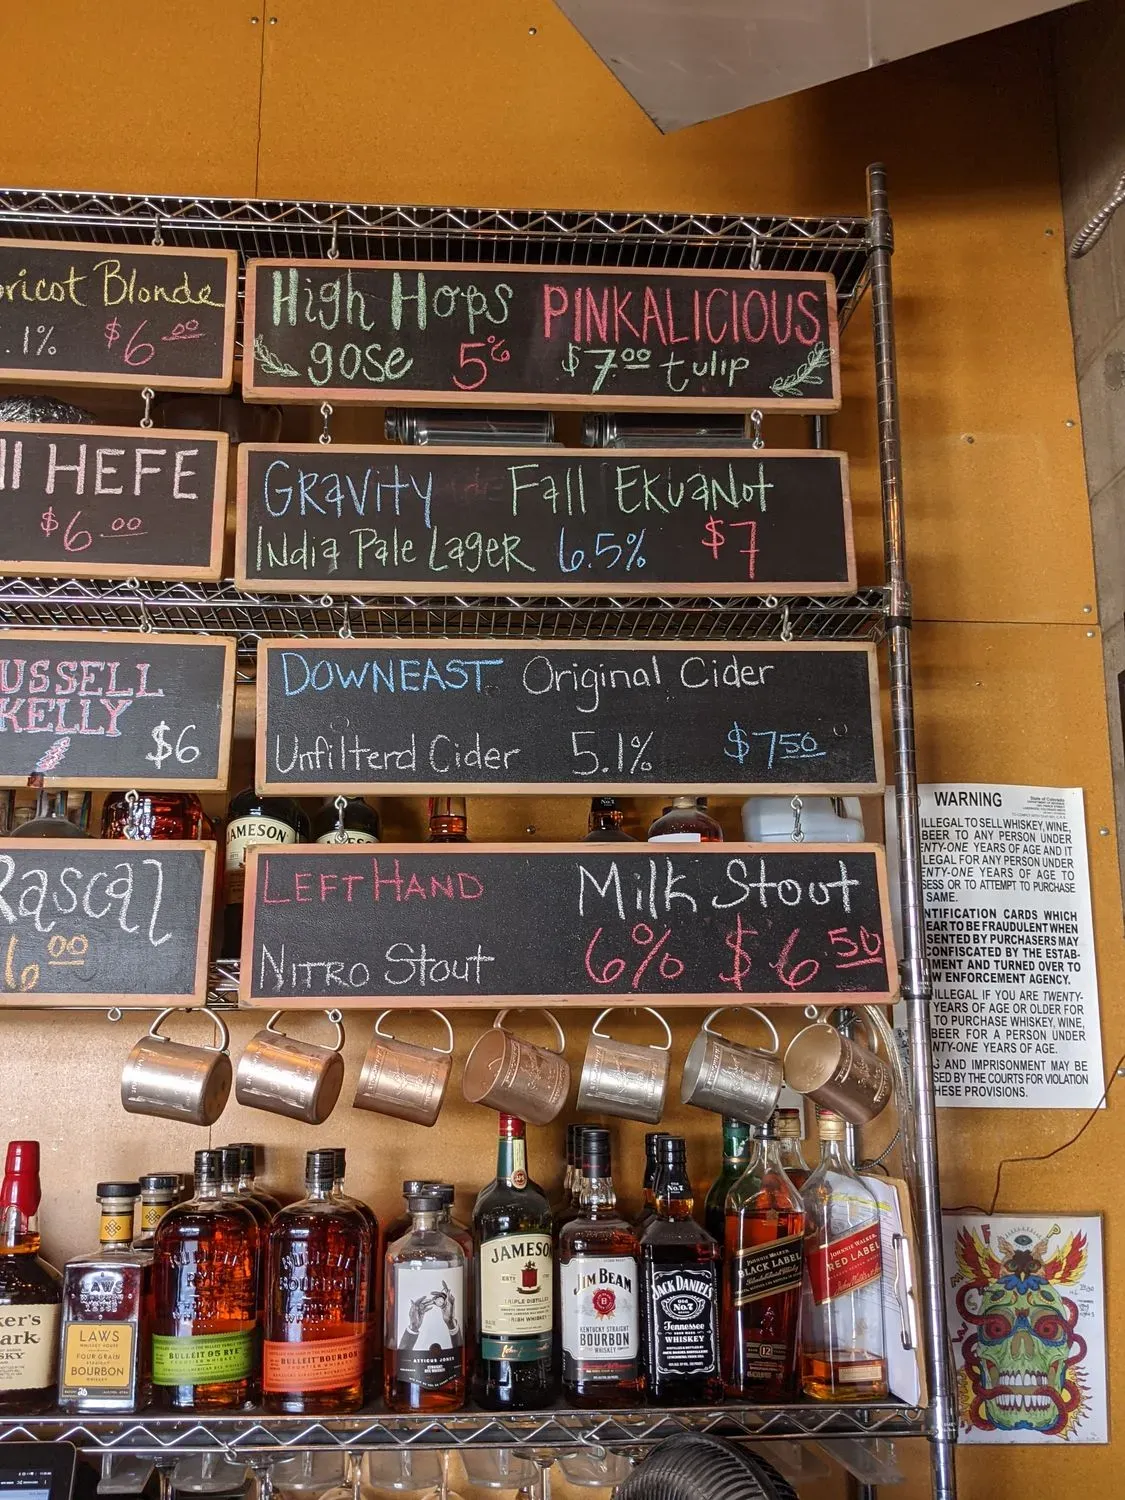 ricot Blonde
.1% $6.00
High Hops PINKALICIOUS
gose 5% $7.00 tulip
HEFE
$6.00
GRavity Fall EkuaNot
India Pale LageR 6.5% $7
USSELL
KELLY
$6
DOWNEAST Original Cider
Unfilterd Cider 5.1% $750
Rascal
6.00
LEFT HAND Milk Stout
NITRO Stout 6% $6.50
JAMESON
WARNING
State of Colorado
ILLEGAL TO SELL WHISKEY, WINE,
BEER TO ANY PERSON UNDER
ENTY-ONE YEARS OF AGE AND IT
LEGAL FOR ANY PERSON UNDER
ENTY-ONE YEARS OF AGE TO
SESS OR TO ATTEMPT TO PURCHASE
SAME.
NTIFICATION CARDS WHICH
EAR TO BE FRAUDULENT WHEN
SENTED BY PURCHASERS MAY
CONFISCATED BY THE ESTAB-
MENT AND TURNED OVER TO
W ENFORCEMENT AGENCY.
ILLEGAL IF YOU ARE TWENTY-
YEARS OF AGE OR OLDER FOR
TO PURCHASE WHISKEY, WINE,
BEER FOR A PERSON UNDER
NTY-ONE YEARS OF AGE.
S AND IMPRISONMENT MAY BE
SED BY THE COURTS FOR VIOLATION
HESE PROVISIONS.
ker's
ark
SKY
LAWS
WHISKEY HOUSE
FOUR GRAIN
STRAIGHT
BOURBON
BULLEIT
RYE
BULLEIT 95 RYE
BULLEIT
BOURBON
BULLEIT BOURBON
ATTICUS JONES
JAMESON
TRIPLE DISTILLED
IRISH WHISKEY
JIM BEAM
KENTUCKY STRAIGHT
BOURBON
JACK DANIEL'S
OLD
No.7
Tennessee
WHISKEY
JOHNNIE WALKER
BLACK LABEL
12
JOHNNIE WALKER
RED LABEL